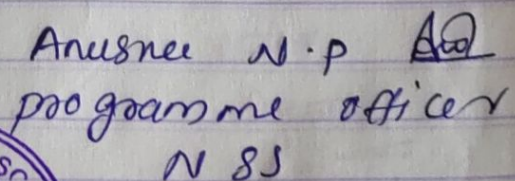 Anusree N.P
programme officer
NSS